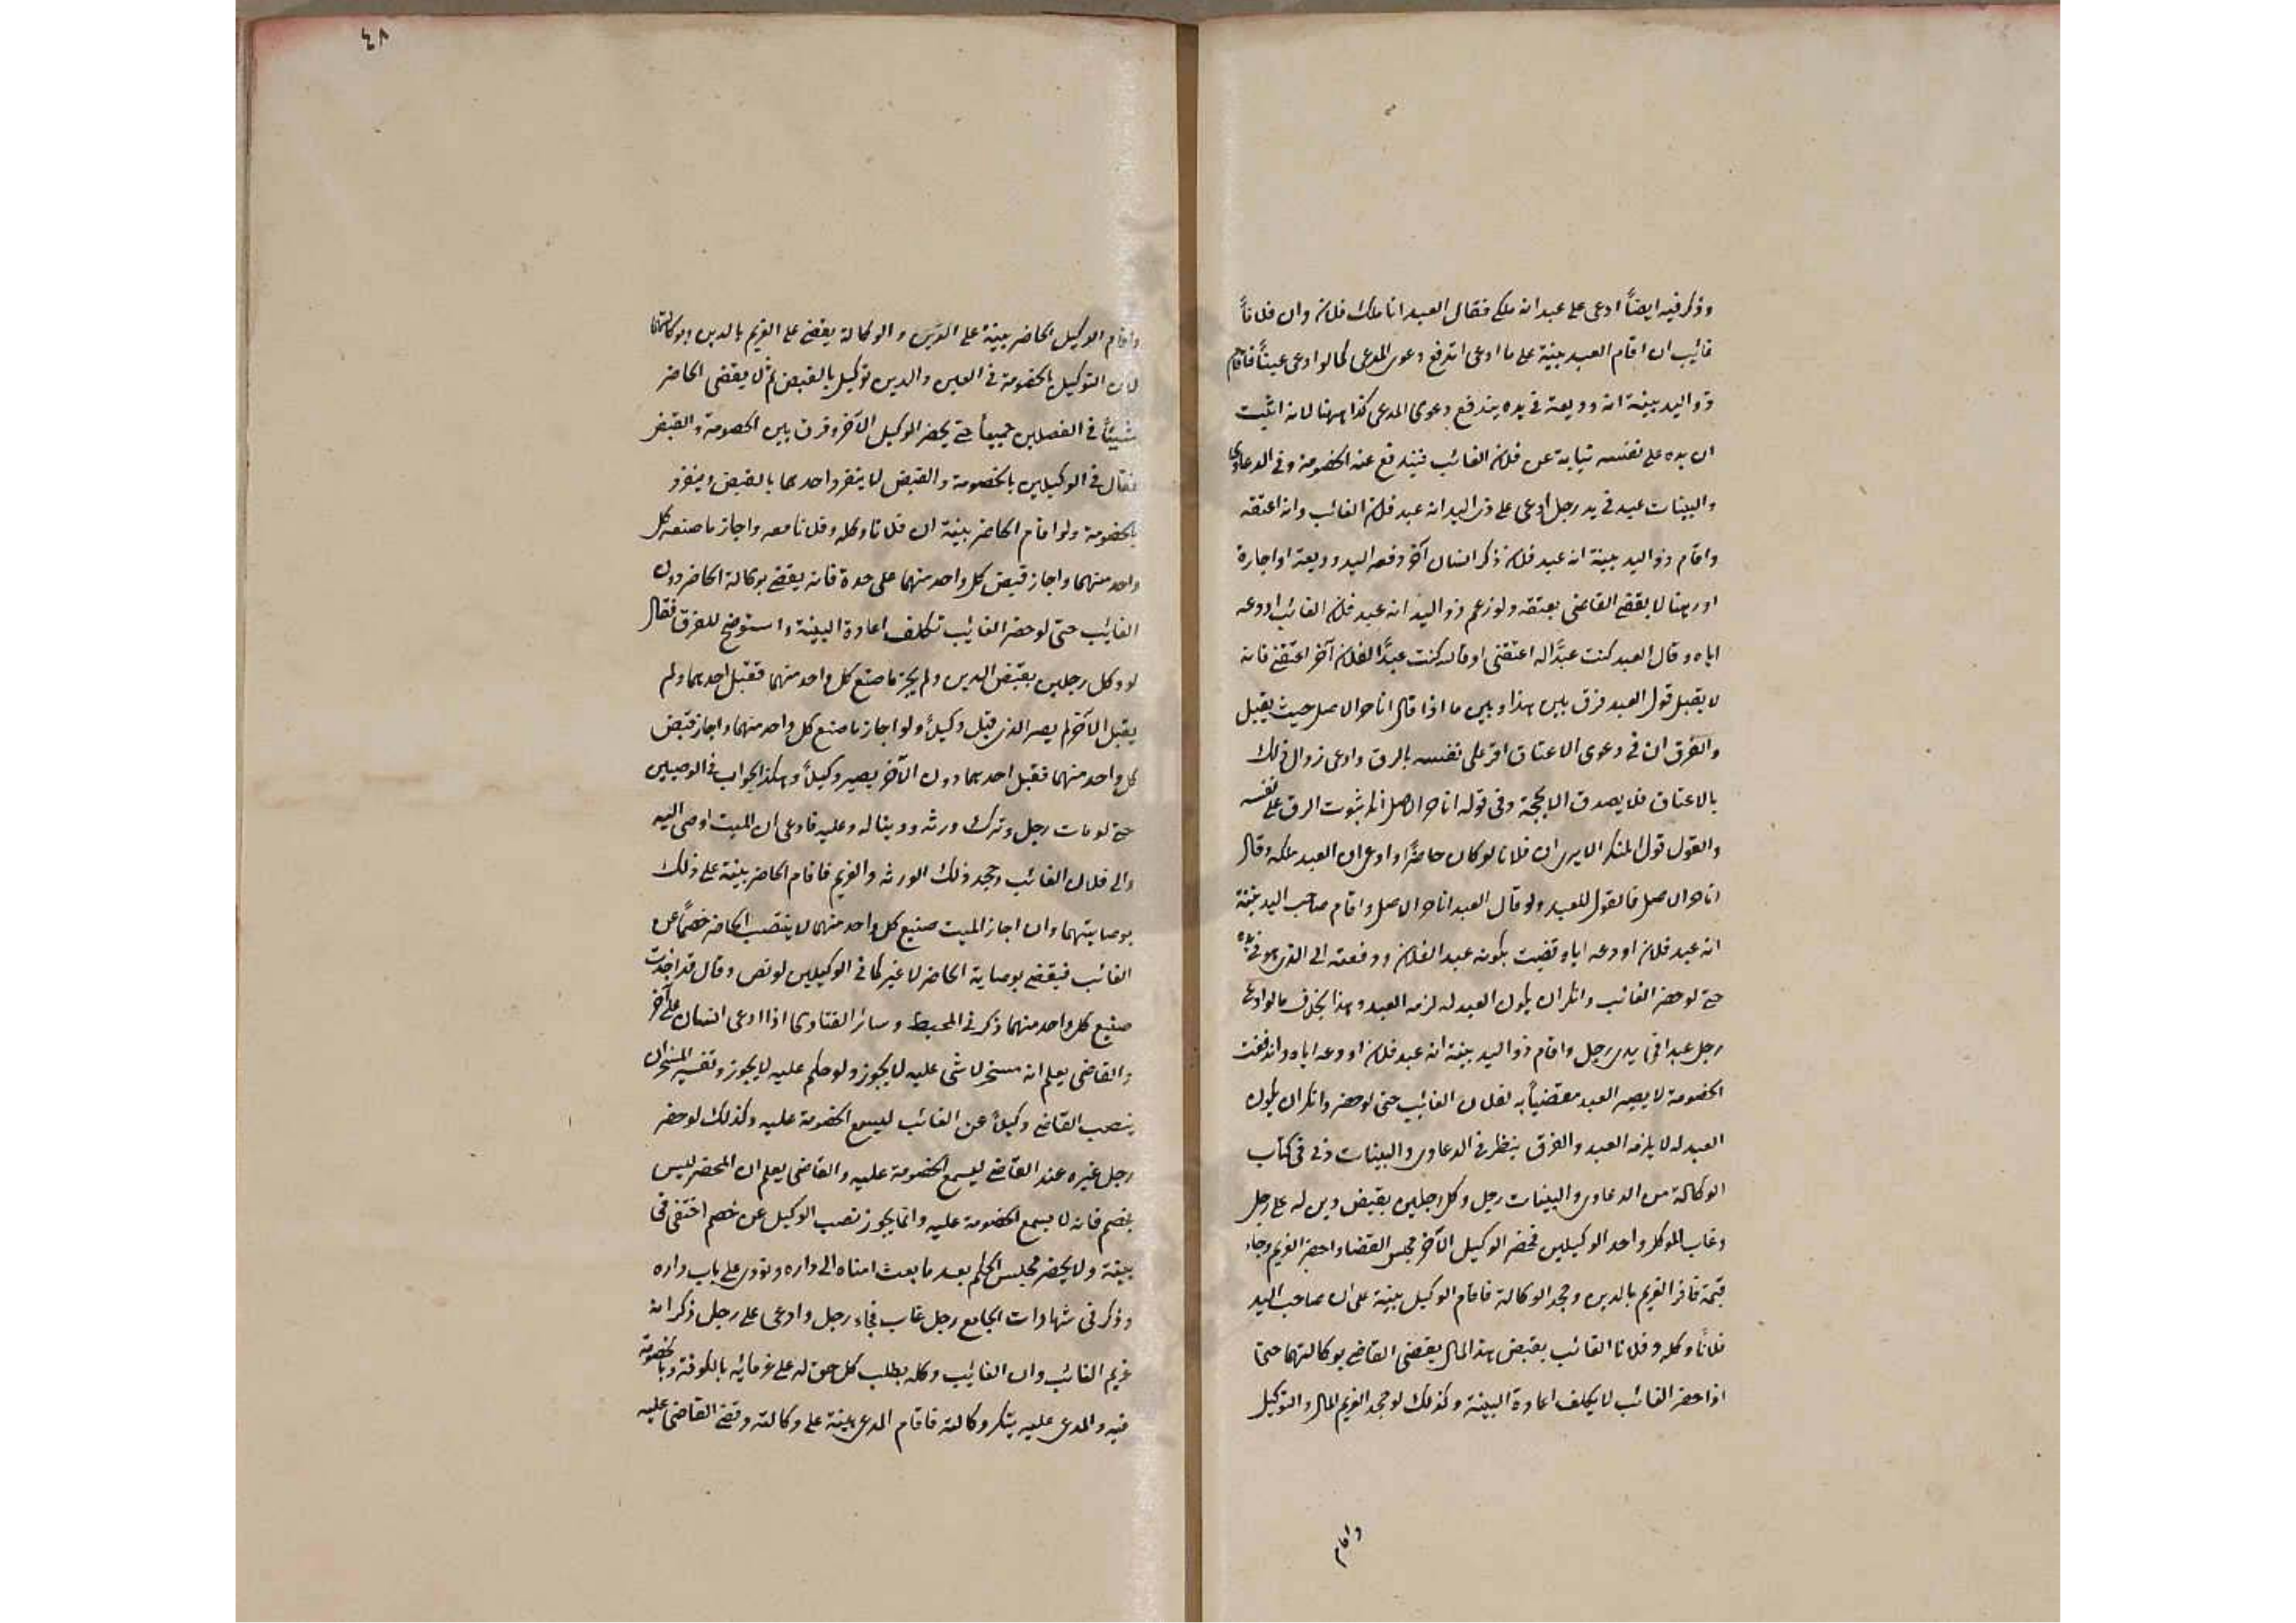 وذكر فيه ايضاً ادعى على عبد انه ملكي فقال العبد انا ملك فلان وان فلاناً
غائب ان اقام العبد بينة على ما ادعى اندفع دعوى المدعى كما لو ادعى عيناً فاقام
ذو اليد بينة انه وديعة في يده يندفع دعوى المدعى كذا ههنا لانه اثبت
ان يده على نفسه نيابة عن فلان الغائب فيندفع عنه الخصومة وفي الدعاوى
والبينات عبد في يد رجل ادعى على ذى اليد انه عبد فلان الغائب وانه اعتقه
واقام ذو اليد بينة انه عبد فلان ذكر انسان آخر دفعه اليه وديعة او اجارة
او رهنا لا يقضى القاضى بعتقه ولو زعم ذو اليد انه عبد فلان الغائب اودعه
اياه وقال العبد كنت عبدًا له اعتقنى او قال كنت عبدًا لفلان آخر اعتقنى فانه
لا يقبل قول العبد فرق بين هذا وبين ما اذا قال انا حر الاصل حيث يقبل
والفرق ان في دعوى الاعتاق اقر على نفسه بالرق وادعى زوال ذلك
بالاعتاق فلا يصدق الا بحجة وفي قوله انا حر الاصل انكر ثبوت الرق على نفسه
والقول قول المنكر الا يرى ان فلانا لو كان حاضرًا وادعى ان العبد ملكه وقال
انا حر الاصل فالقول للعبد ولو قال العبد انا حر الاصل واقام صاحب اليد بينة
انه عبد فلان اودعه اياه قضيت بكونه عبد الفلان ودفعته الى الذى هو في يده
حتى لو حضر الغائب وانكر ان يكون العبد له لزمه العبد وهذا بخلاف ما لو ادعى
رجل عبدا في يدى رجل واقام ذو اليد بينة انه عبد فلان اودعه اياه واندفعت
الخصومة لا يصير العبد مقضياً به لفلان الغائب حتى لو حضر وانكر ان يكون
العبد له لا يلزمه العبد والفرق ينظر في الدعاوى والبينات وفي كتاب
الوكالة من الدعاوى والبينات رجل وكل رجلين بقبض دين له على رجل
وغاب الموكل واحد الوكيلين فحضر الوكيل الآخر مجلس القضا واحضر الغريم وجاء
فاقر الغريم بالدين وجحد الوكالة فاقام الوكيل بينة على ان صاحب اليد
فلانًا وكله وفلانا الغائب بقبض هذا المال يقضى القاضى بوكالتهما حتى
اذا حضر الغائب لا يكلف اعادة البينة وكذلك لو جحد الغريم المال والتوكيل
واقام
٤٨
واقام الوكيل الحاضر بينة على الدين والوكالة يقضى على الغريم بالدين وبوكالتهما
لان التوكيل بالخصومة في العين والدين توكيل بالقبض ثم لا يقضى الحاضر
شيئاً في الفصلين جميعاً حتى يحضر الوكيل الآخر وفرق بين الخصومة والقبض
فقال في الوكيلين بالخصومة والقبض لا ينفرد احدهما بالقبض وينفرد
بالخصومة ولو اقام الحاضر بينة ان فلانا وكله وفلانا معه واجاز ما صنعه كل
واحد منهما واجاز قبض كل واحد منهما على حدة فانه يقضى بوكالة الحاضر دون
الغائب حتى لو حضر الغائب تكلف اعادة البينة واستوضح للفرق فقال
لو وكل رجلين بقبض الدين ولم يجز ما صنع كل واحد منهما فقبل احدهما ولم
يقبل الآخر لم يصر الذى قبل وكيلاً ولو اجاز ما صنع كل واحد منهما واجاز قبض
كل واحد منهما فقبل احدهما دون الآخر يصير وكيلاً وهكذا الجواب في الوصيين
حتى لو مات رجل وترك ورثه ودينا له وعليه فادعى ان الميت اوصى اليه
والى فلان الغائب وجحد ذلك الورثه والغريم فاقام الحاضر بينة على ذلك
بوصايتهما وان اجاز الميت صنيع كل واحد منهما لا ينتصب الحاضر خصماً عن
الغائب فيقضى بوصاية الحاضر لا غير كما في الوكيلين لو نص وقال قد اجزت
صنيع كل واحد منهما ذكر في المحيط وسائر الفتاوى اذا ادعى انسان على آخر
والقاضى يعلم انه مسخر لا شى عليه لا يجوز ولو حكم عليه لا يجوز وتفسير المسخر ان
ينصب القاضى وكيلاً عن الغائب ليسمع الخصومة عليه وكذلك لو حضر
رجل غيره عند القاضى ليسمع الخصومة عليه والقاضى يعلم ان المحضر ليس
بخصم فانه لا يسمع الخصومة عليه وانما يجوز نصب الوكيل عن خصم اختفى في
بيته ولا يحضر مجلس الحكم بعد ما بعث امناه الى داره ونودى على باب داره
وذكر في شهادات الجامع رجل غاب فجاء رجل وادعى على رجل ذكر انه
غريم الغائب وان الغائب وكله بطلب كل حق له على غرمائه بالكوفة وبالخصومة
فيه والمدعى عليه ينكر وكالته فاقام المدعى بينة على وكالته وقضى القاضى عليه